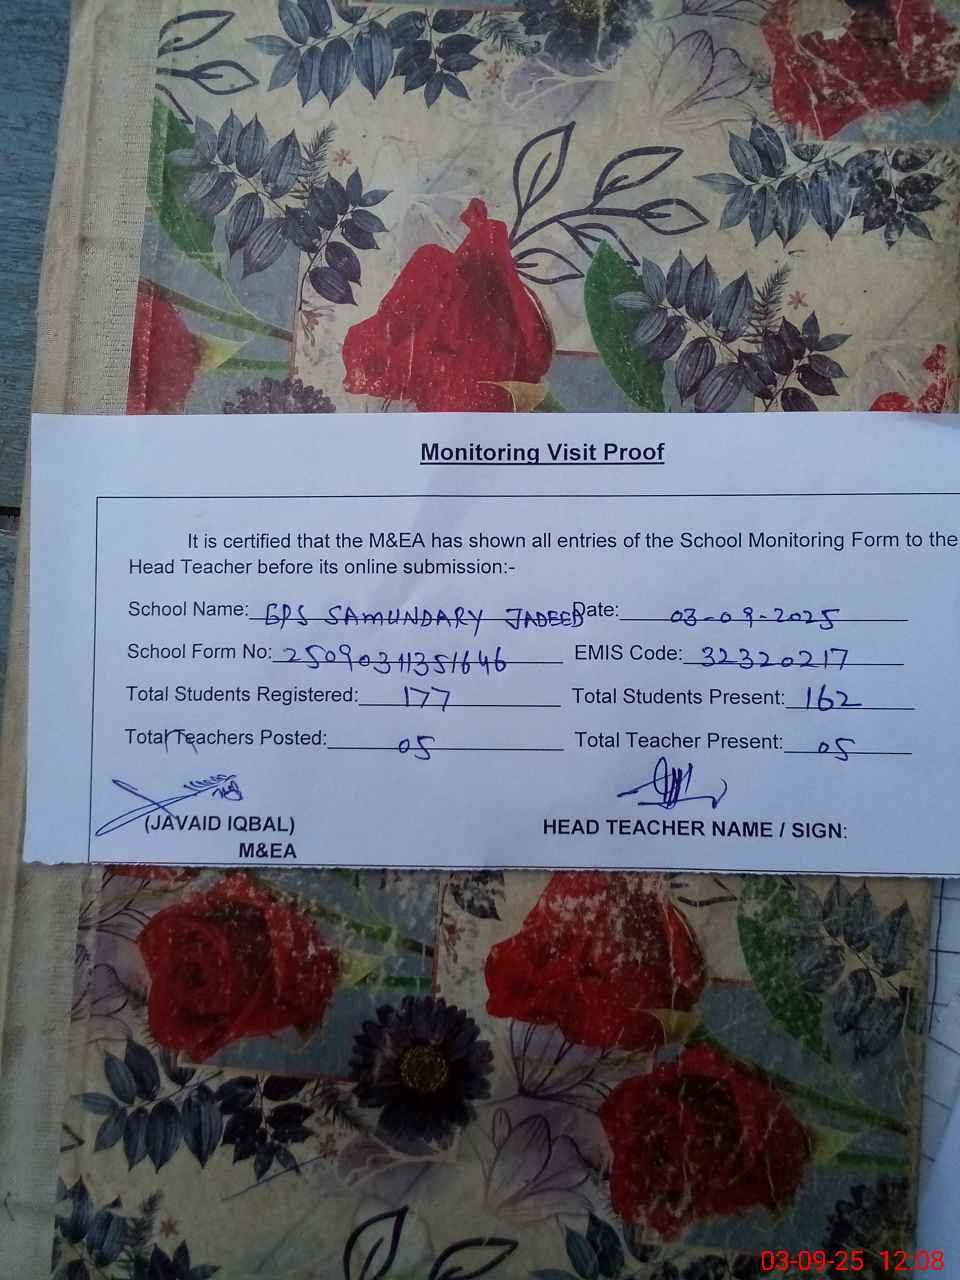 Monitoring Visit Proof
It is certified that the M&EA has shown all entries of the School Monitoring Form to the
Head Teacher before its online submission:-
School Name: GPS SAMUNDARY JADEED Date: 03-09-2025
School Form No: 25090311351646 EMIS Code: 32320217
Total Students Registered: 177 Total Students Present: 162
Total Teachers Posted: 05 Total Teacher Present: 05
(JAVAID IQBAL) HEAD TEACHER NAME / SIGN:
M&EA
03-09-25 12:08